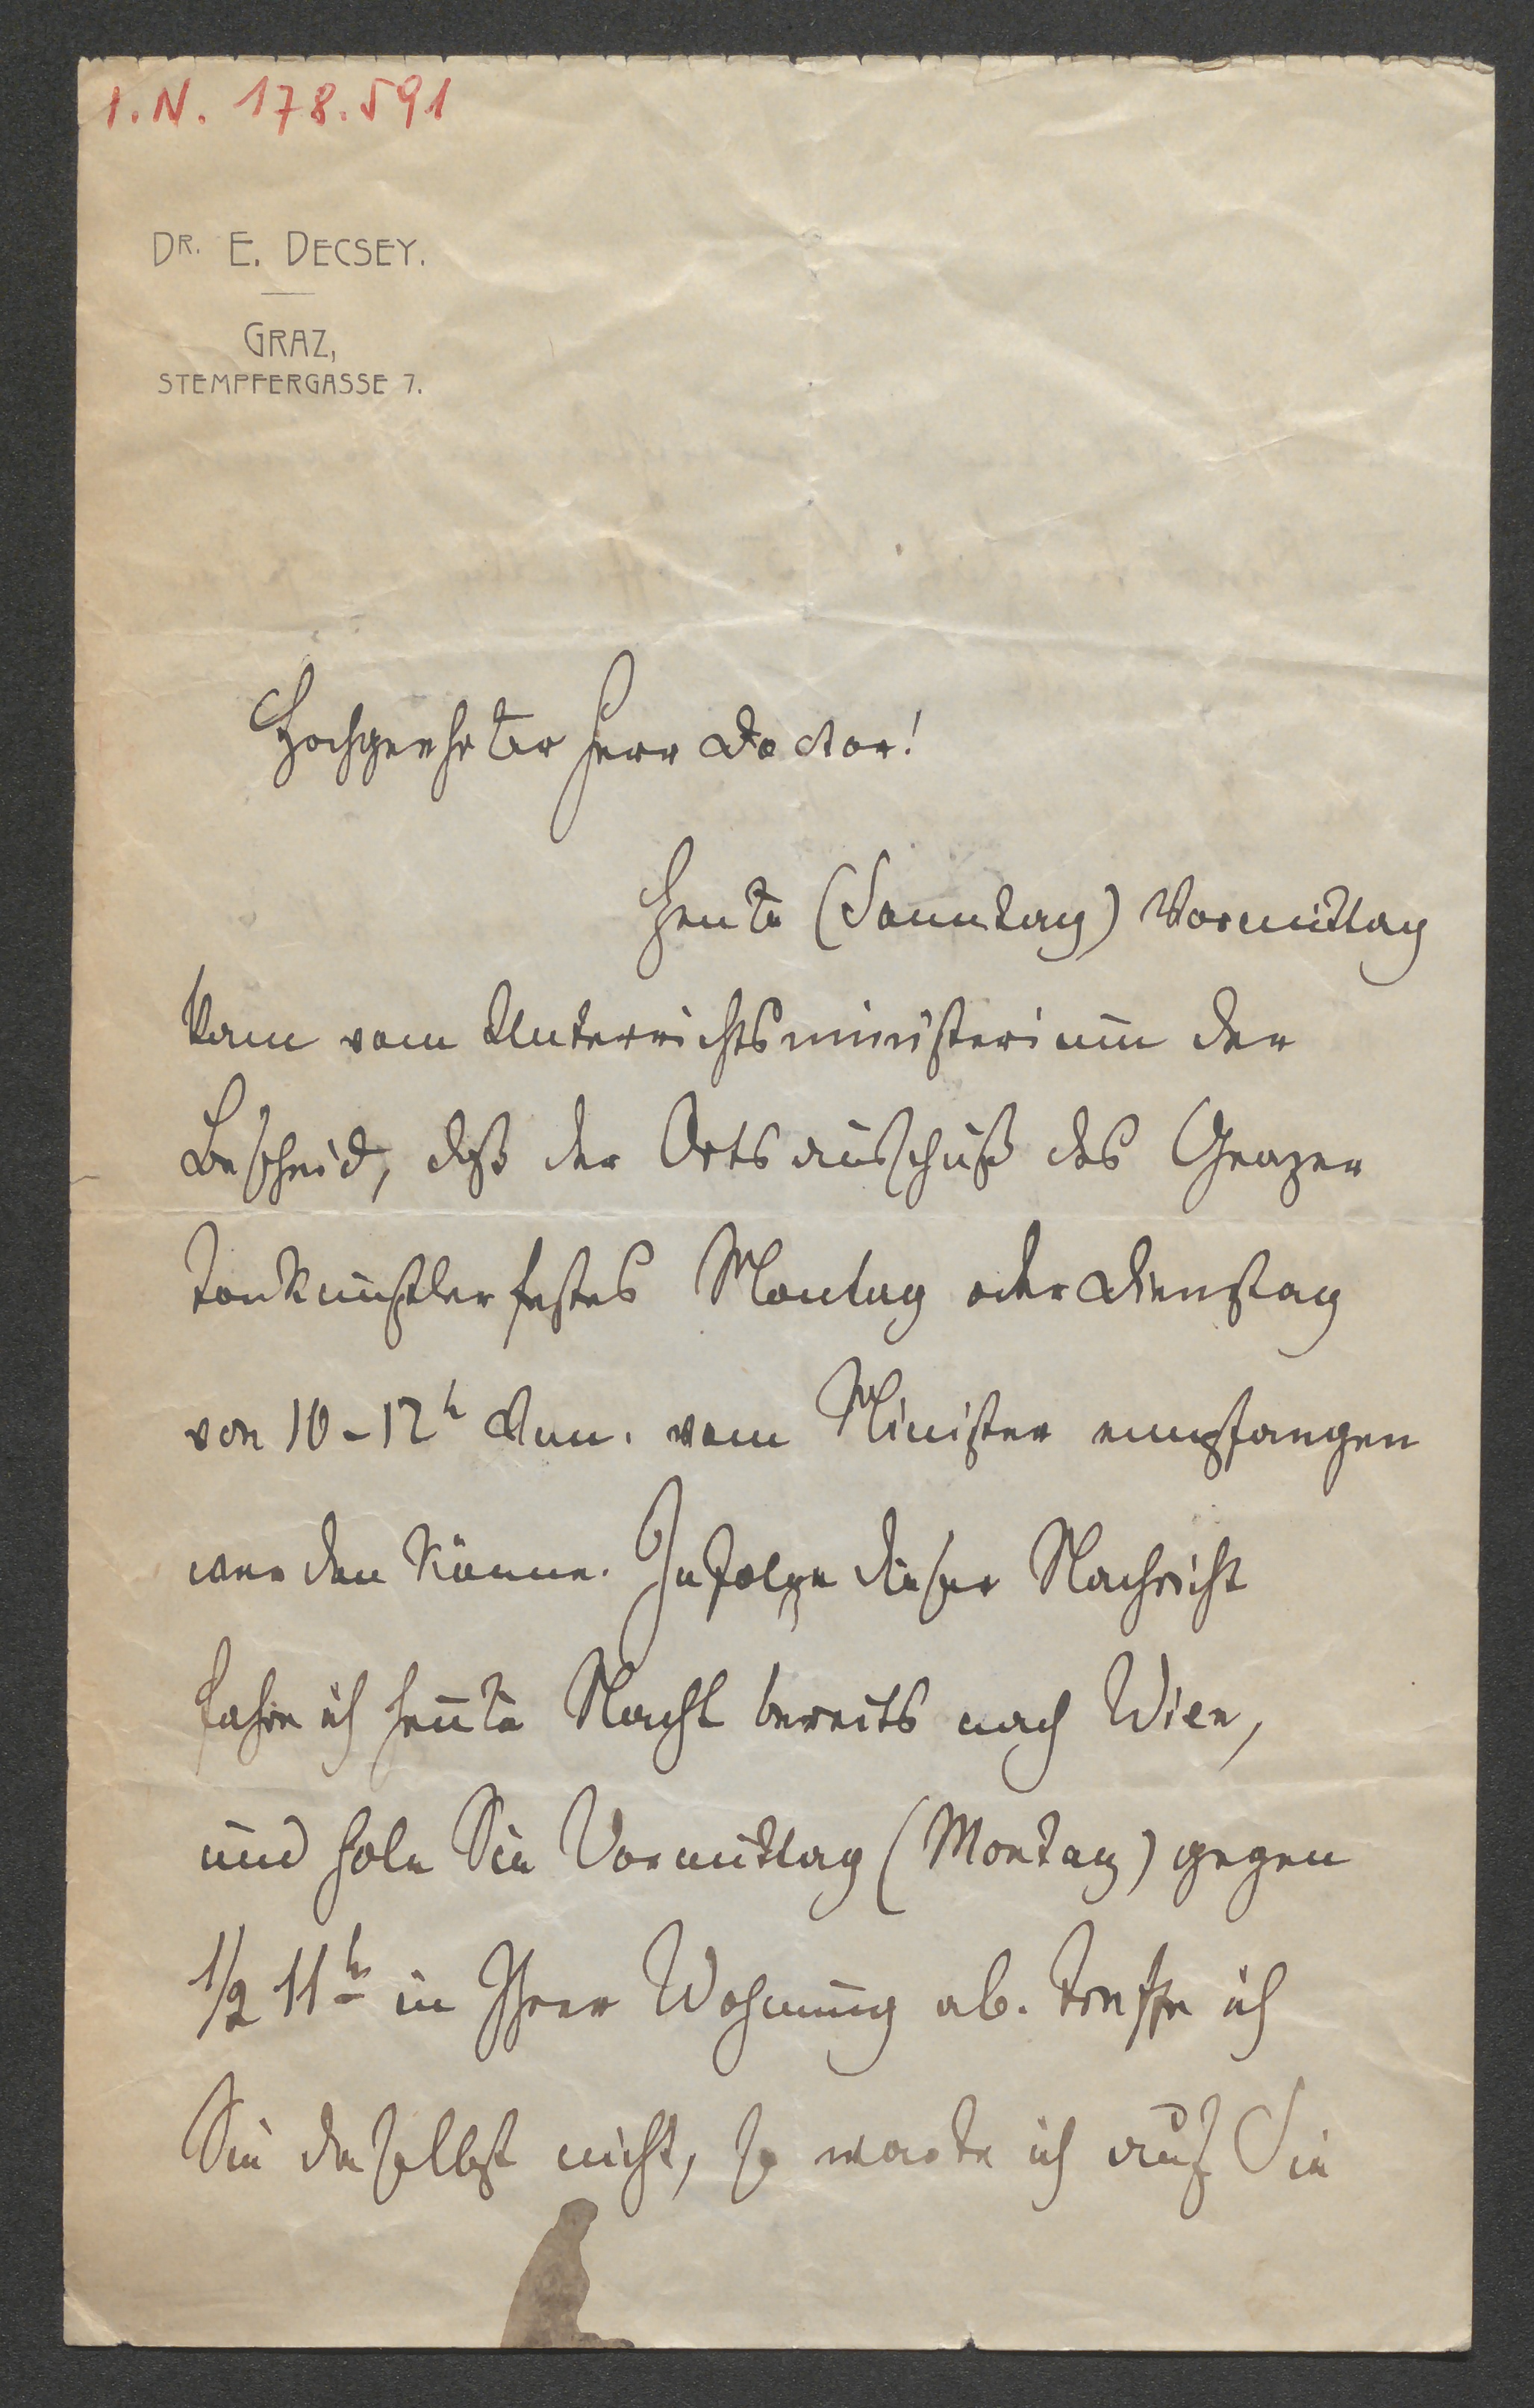 I.N. 178.591
DR. E. DECSEY.
GRAZ,
STEMPFERGASSE 7.
Hochgeehrter Herr Doctor!
Heute (Sonntag) Vormittag
kam vom Unterrichtsministerium der
Bescheid, daß der Ortsausschuß des Grazer
Tonkünstlerfestes Montag oder Dienstag
von 10-12h vom Minister empfangen
werden könne. Infolge dieser Nachricht
fahre ich heute Nacht bereits nach Wien,
und hole Sie Vormittag (Montag) gegen
1/2 11h in Ihrer Wohnung ab. Treffe ich
Sie daselbst nicht, so warte ich auf Sie